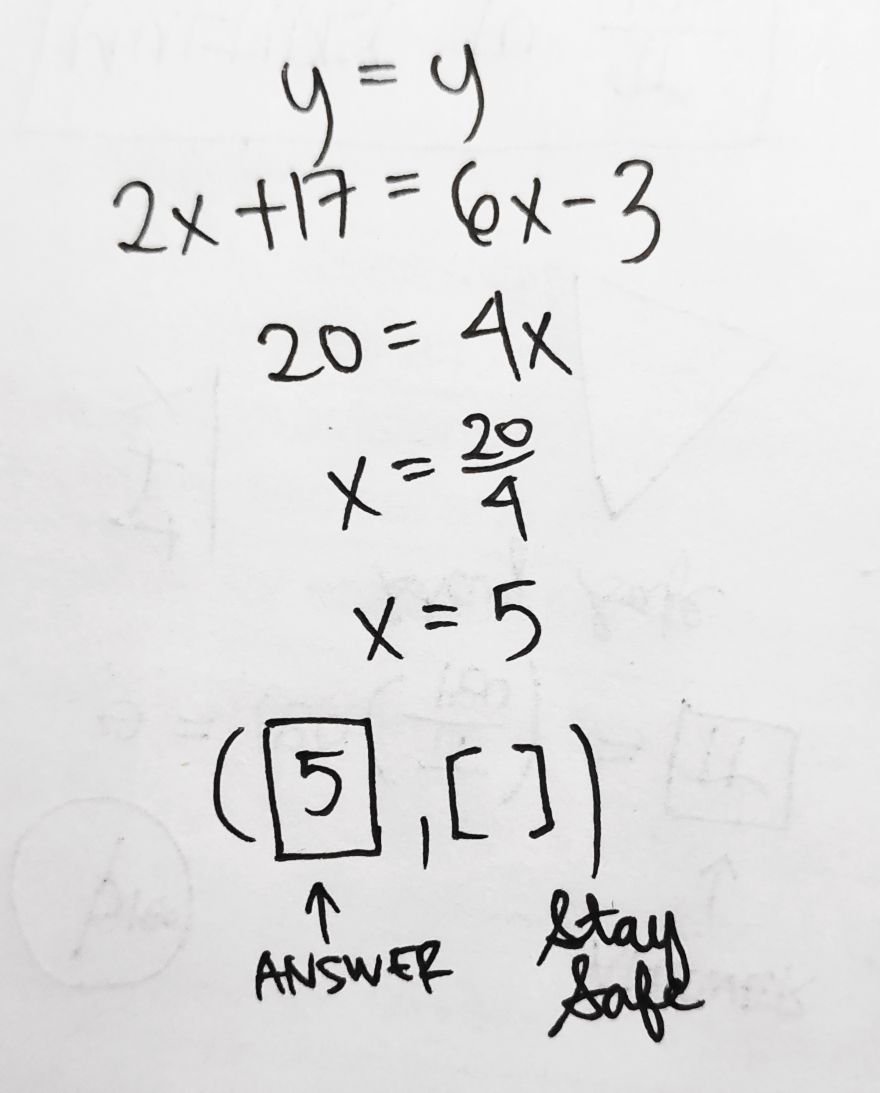 y = y
2x + 17 = 6x - 3
20 = 4x
x = 20/4
x = 5
(5, [ ])
↑
ANSWER
Stay
Safe